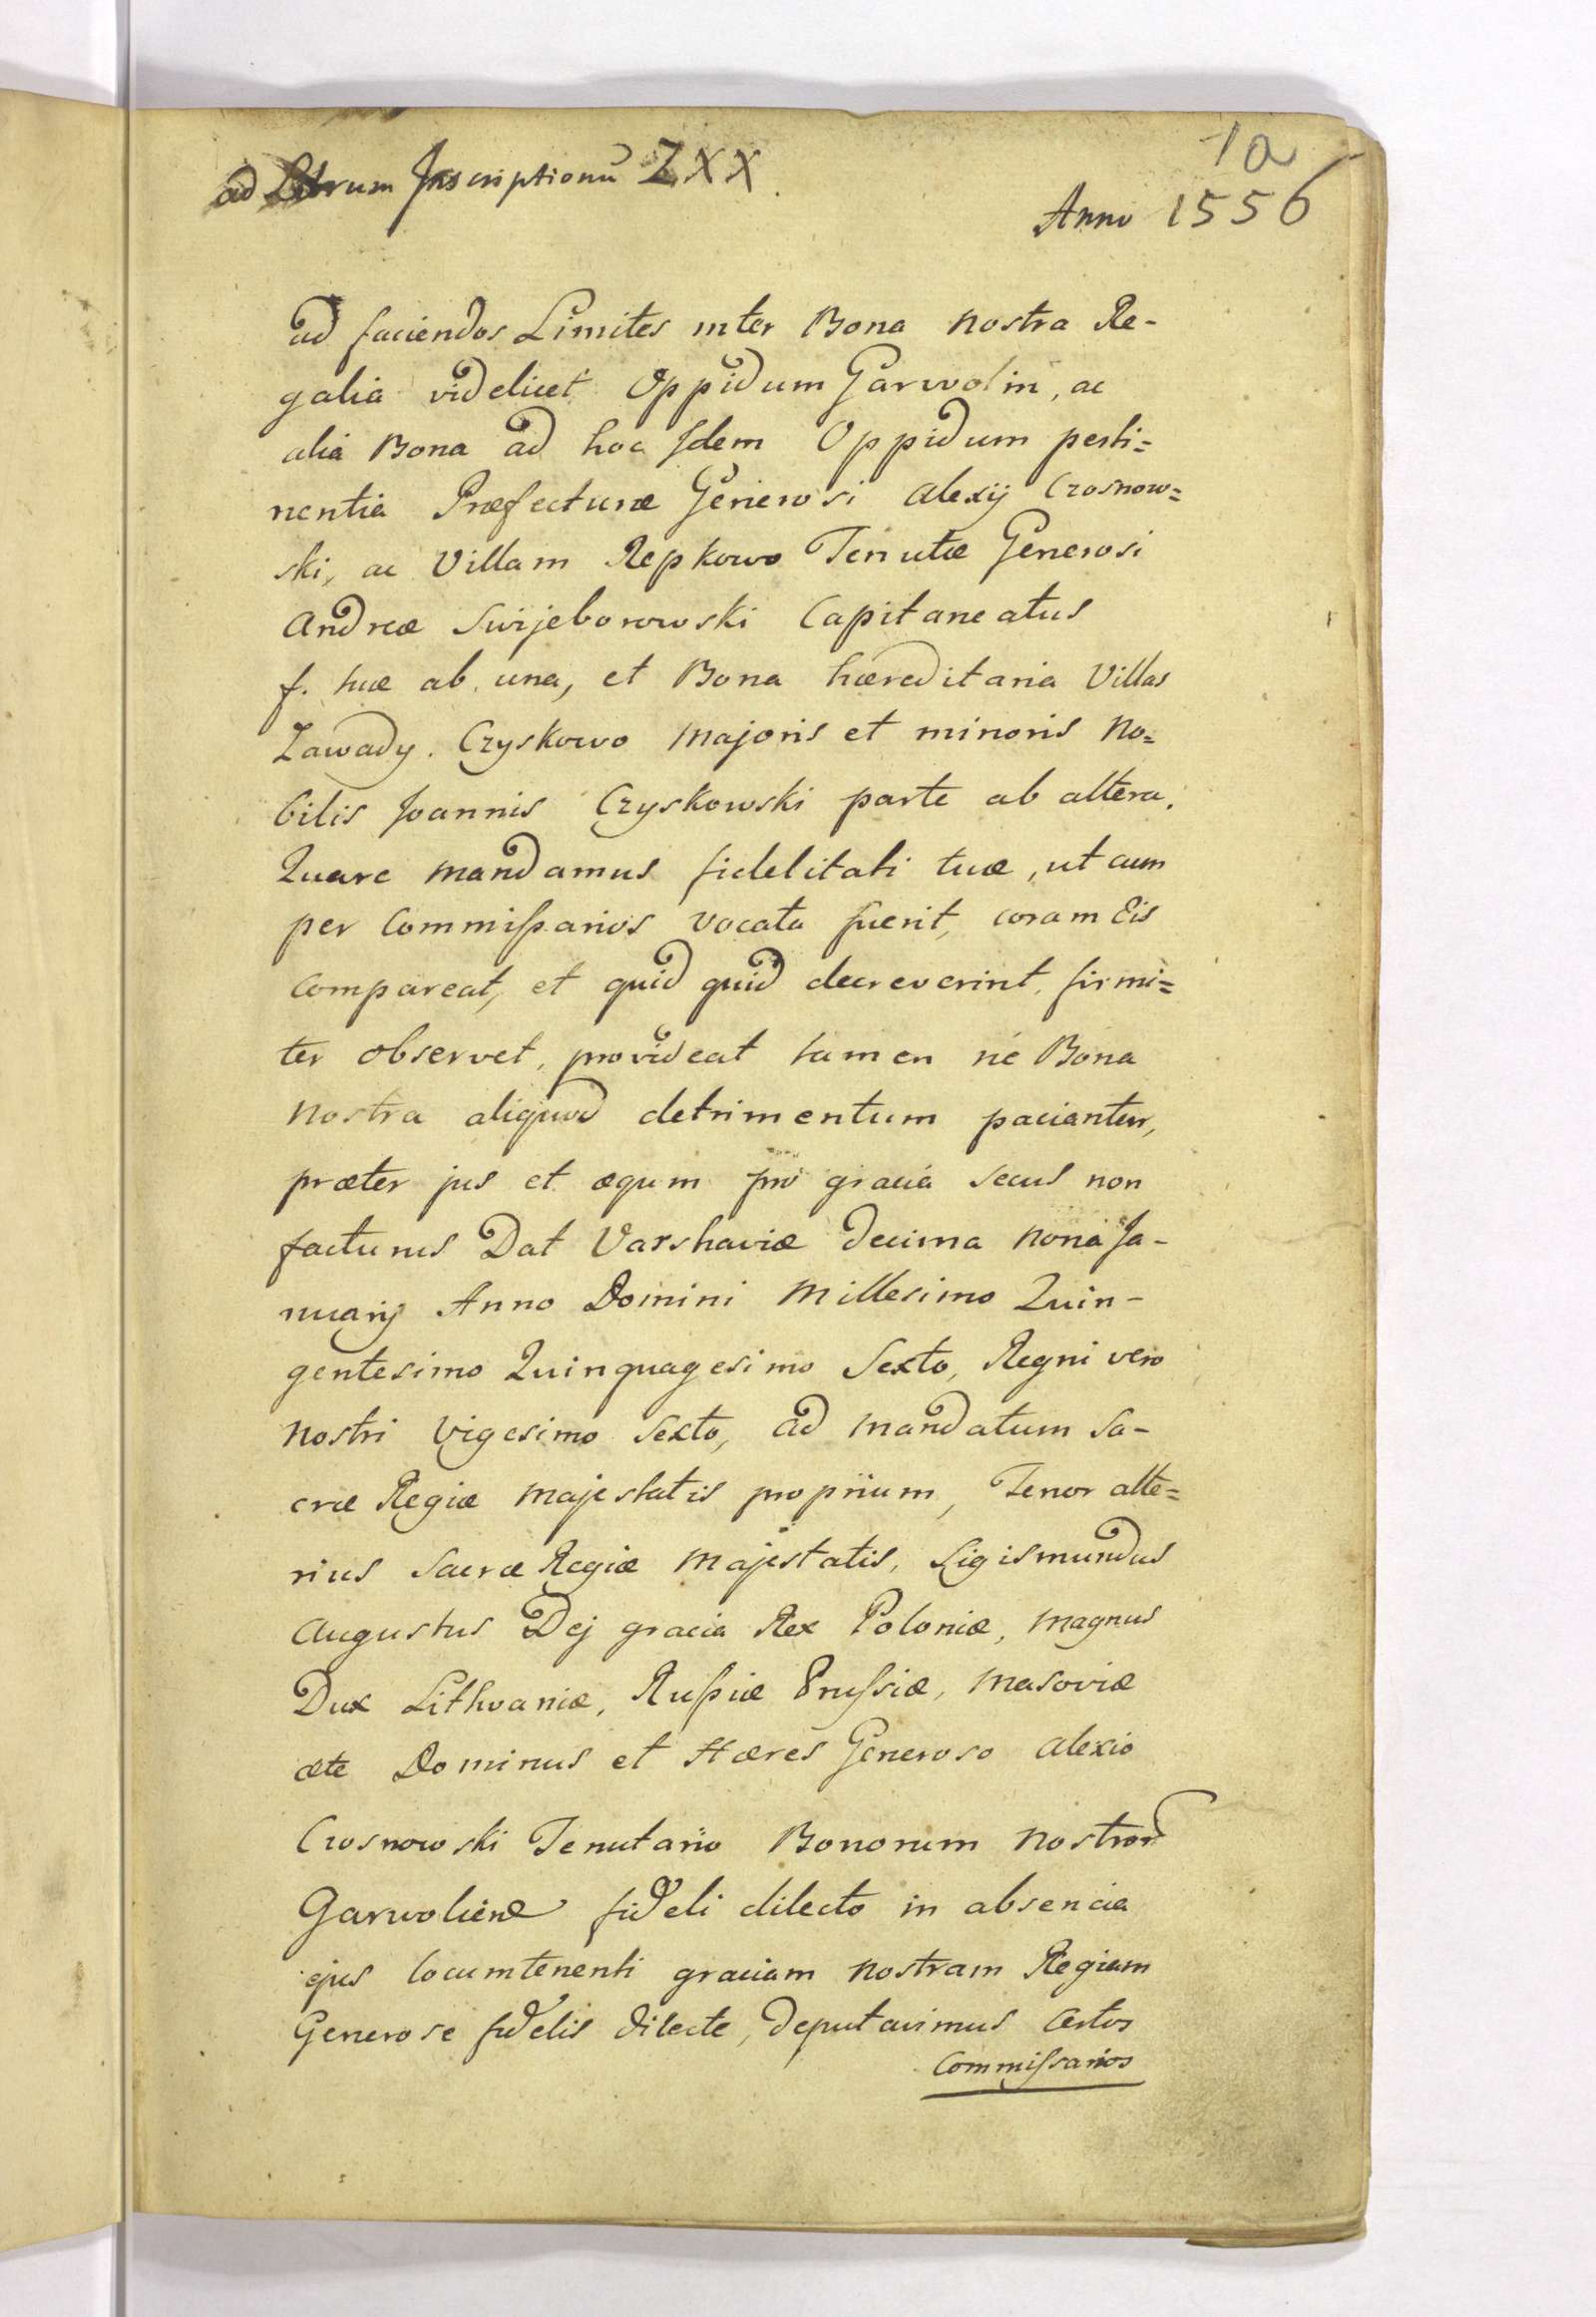 1a
ad Librum Inscriptionũ ZXX
Anno 1556
ad faciendos Limites inter Bona nostra Re-
galia videlicet Oppidum Garwolin, ac
alia Bona ad hoc Idem Oppidum perti=
nentia Præfecturæ Generosi Alexij Crosnow=
ski, ac Villam Repkowo Tenutæ Generosi
Andreæ Swijeborowski Capitaneatus
f. tuæ ab una, et Bona hæreditaria Villas
Zawady. Czyskowo Majoris et minoris No=
bilis Joannis Czyskowski parte ab altera.
Quare mandamus fidelitati tuæ, ut cum
per Commissarios vocata fuerit, coram Eis
compareat, et quid quid decreverint, firmi=
ter observet, provideat tamen ne Bona
nostra aliquod detrimentum paciantur,
præter jus et æqum pro gracia secus non
facturus Dat Varshaviæ decima nona Ja-
nuarij Anno Domini Millesimo Quin-
gentesimo Quinquagesimo Sexto, Regni vero
nostri Vigesimo Sexto, ad mandatum Sa-
cræ Regiæ Majestatis proprium, Tenor alte=
rius Sacræ Regiæ Majestatis, Sigismundus
Augustus Dej gracia Rex Poloniæ, Magnus
Dux Lithvaniæ, Russiæ Prussiæ, Masoviæ
æte Dominus et Hæres Generoso Alexio
Crosnowski Tenutario Bonorum nostror
Garwolien fideli dilecto in absencia
ejus locumtenenti graciam nostram Regiam
Generose fidelis dilecte, deputavimus certos
Commissarios